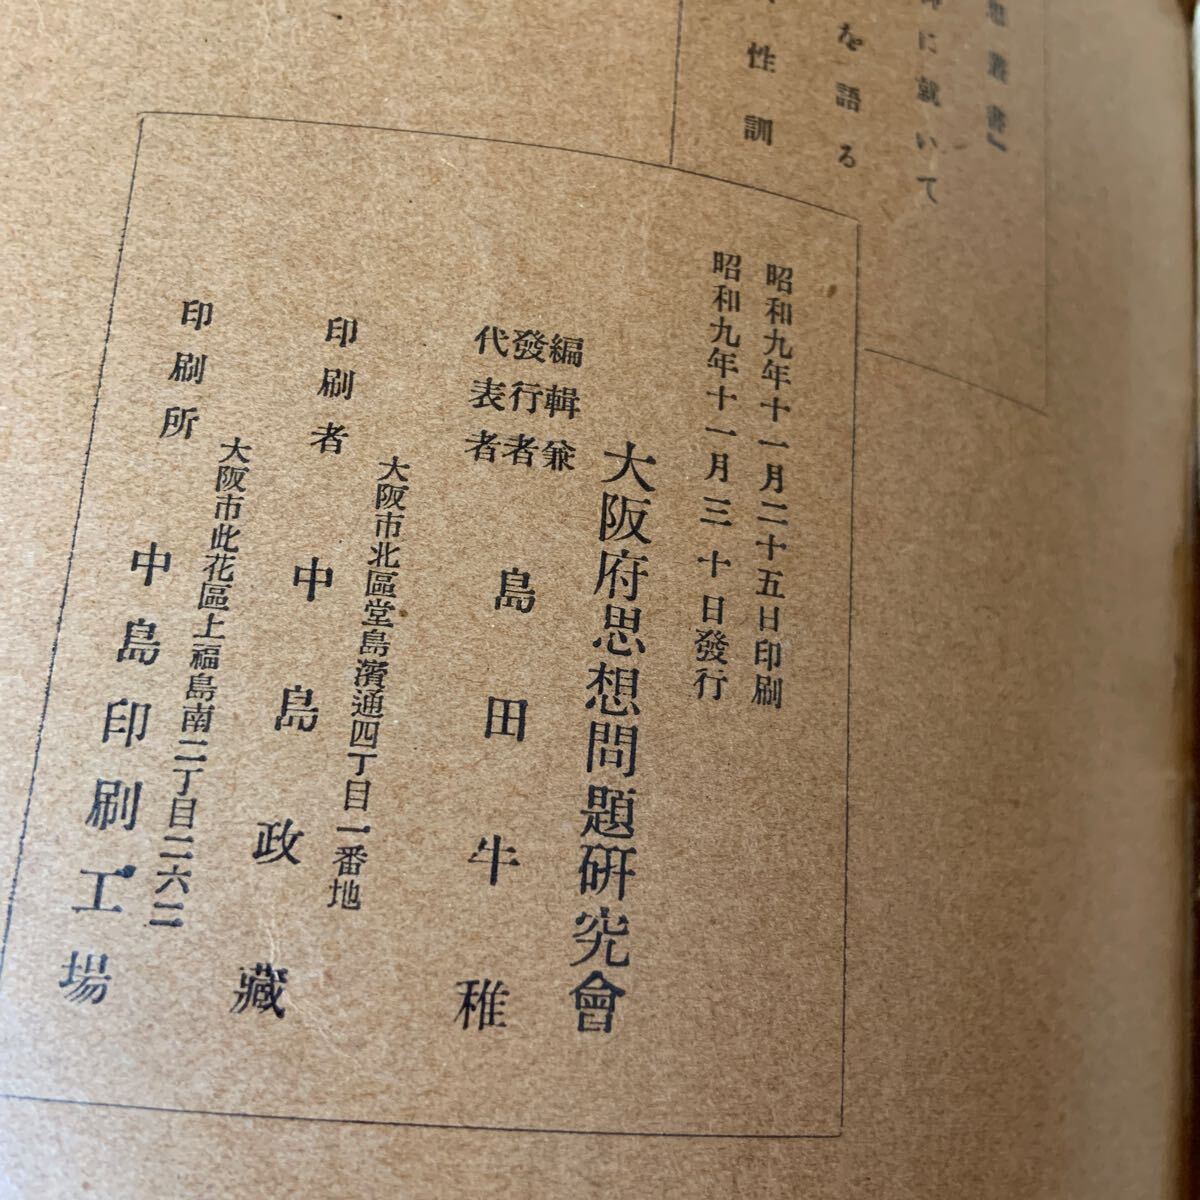 叢書』
に就いて
を語る
性訓
昭和九年十一月二十五日印刷
昭和九年十一月三十日發行
大阪府思想問題研究會
編輯兼
發行者
代表者
島田牛稚
大阪市北區堂島濱通四丁目一番地
印刷者
中島政藏
大阪市此花區上福島南二丁目二六二
印刷所
中島印刷工場